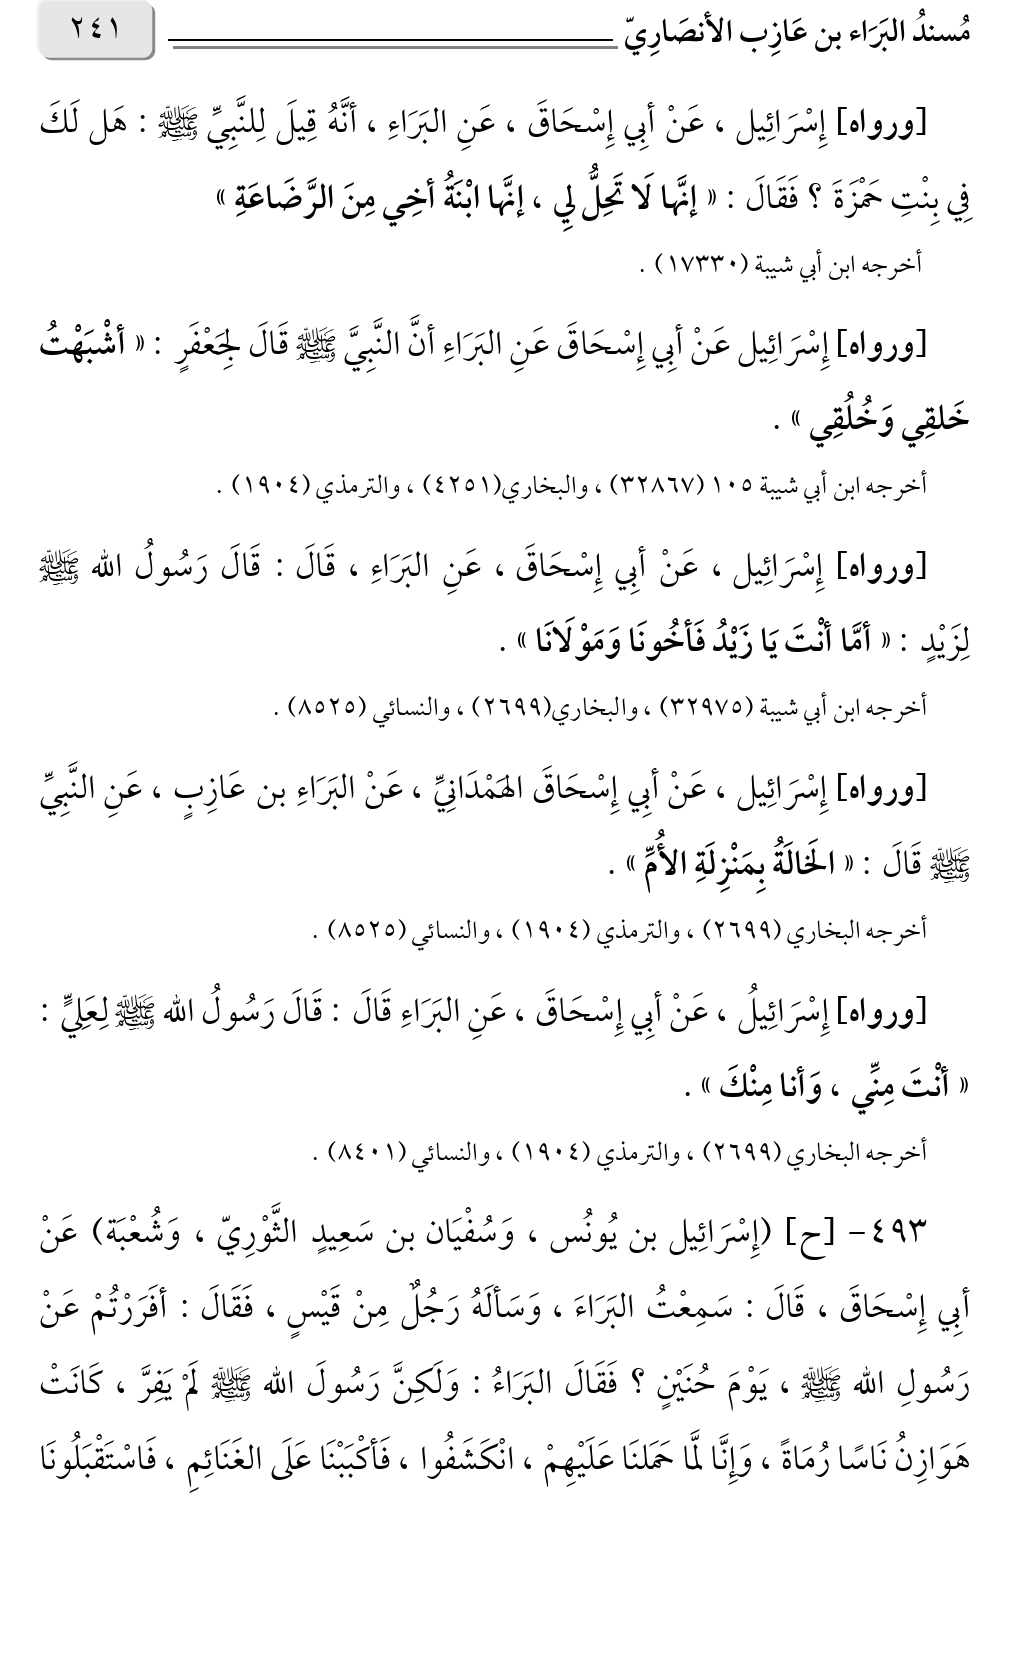 مُسندُ البَرَاء بن عَازِب الأنصَارِيّ ٢٤١
[ورواه] إِسْرَائِيل ، عَنْ أبِي إِسْحَاقَ ، عَنِ البَرَاءِ ، أنَّهُ قِيلَ لِلنَّبِيِّ ﷺ : هَل لَكَ
فِي بِنْتِ حَمْزَةَ ؟ فَقَالَ : « إنَّها لَا تَحِلُّ لِي ، إنَّها ابْنَةُ أخِي مِنَ الرَّضَاعَةِ »
أخرجه ابن أبي شيبة (١٧٣٣٠) .
[ورواه] إِسْرَائِيل عَنْ أبِي إِسْحَاقَ عَنِ البَرَاءِ أنَّ النَّبِيَّ ﷺ قَالَ لِجَعْفَرٍ : « أشْبَهْتُ
خَلقِي وَخُلُقِي » .
أخرجه ابن أبي شيبة ١٠٥ (٣٢٨٦٧) ، والبخاري(٤٢٥١) ، والترمذي (١٩٠٤) .
[ورواه] إِسْرَائِيل ، عَنْ أبِي إِسْحَاقَ ، عَنِ البَرَاءِ ، قَالَ : قَالَ رَسُولُ الله ﷺ
لِزَيْدٍ : « أمَّا أنْتَ يَا زَيْدُ فَأخُونَا وَمَوْلَانَا » .
أخرجه ابن أبي شيبة (٣٢٩٧٥) ، والبخاري(٢٦٩٩) ، والنسائي (٨٥٢٥) .
[ورواه] إِسْرَائِيل ، عَنْ أبِي إِسْحَاقَ الهَمْدَانِيِّ ، عَنْ البَرَاءِ بن عَازِبٍ ، عَنِ النَّبِيِّ
ﷺ قَالَ : « الخَالَةُ بِمَنْزِلَةِ الأُمِّ » .
أخرجه البخاري (٢٦٩٩) ، والترمذي (١٩٠٤) ، والنسائي (٨٥٢٥) .
[ورواه] إِسْرَائِيلُ ، عَنْ أبِي إِسْحَاقَ ، عَنِ البَرَاءِ قَالَ : قَالَ رَسُولُ الله ﷺ لِعَلِيٍّ :
« أنْتَ مِنِّي ، وَأنا مِنْكَ » .
أخرجه البخاري (٢٦٩٩) ، والترمذي (١٩٠٤) ، والنسائي (٨٤٠١) .
٤٩٣- [ح] (إِسْرَائِيل بن يُونُس ، وَسُفْيَان بن سَعِيدٍ الثَّوْرِيّ ، وَشُعْبَة) عَنْ
أبِي إِسْحَاقَ ، قَالَ : سَمِعْتُ البَرَاءَ ، وَسَألَهُ رَجُلٌ مِنْ قَيْسٍ ، فَقَالَ : أفَرَرْتُمْ عَنْ
رَسُولِ الله ﷺ ، يَوْمَ حُنَيْنٍ ؟ فَقَالَ البَرَاءُ : وَلَكِنَّ رَسُولَ الله ﷺ لَمْ يَفِرَّ ، كَانَتْ
هَوَازِنُ نَاسًا رُمَاةً ، وَإِنَّا لَمَّا حَمَلنَا عَلَيْهِمْ ، انْكَشَفُوا ، فَأكْبَبْنَا عَلَى الغَنَائِمِ ، فَاسْتَقْبَلُونَا